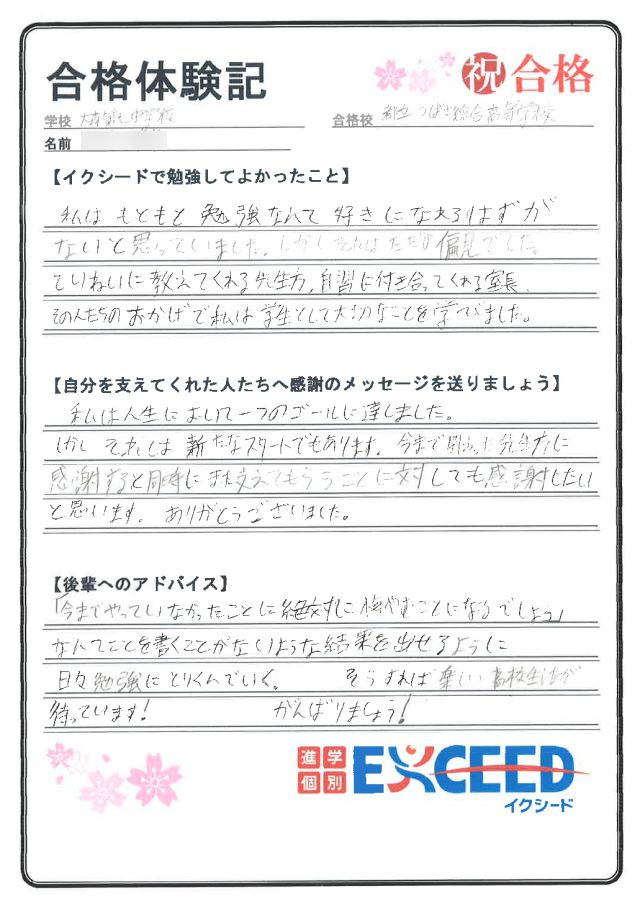 合格体験記
祝 合格
学校 大森第七中学校
合格校 都立つばさ総合高等学校
名前
【イクシードで勉強してよかったこと】
私はもともと勉強なんて好きになれるはずが
ないと思っていました。しかしそれはただの偏見でした。
ていねいに教えてくれる先生方、自習に付き合ってくれる室長、
その人たちのおかげで私は学生として大切なことを学びました。
【自分を支えてくれた人たちへ感謝のメッセージを送りましょう】
私は人生において一つのゴールに達しました。
しかしそれは新たなスタートでもあります。今まで関わった先生方に
感謝すると同時にまた支えてもらうことに対しても感謝したい
と思います。ありがとうございました。
【後輩へのアドバイス】
「今までやっていなかったことに絶対に悔やむことになるでしょう」
なんてことを書くことがないような結果を出せるように
日々勉強にとりくんでいく。 そうすれば楽しい高校生活が
待っています! がんばりましょう!
進学
個別
EXCEED
イクシード